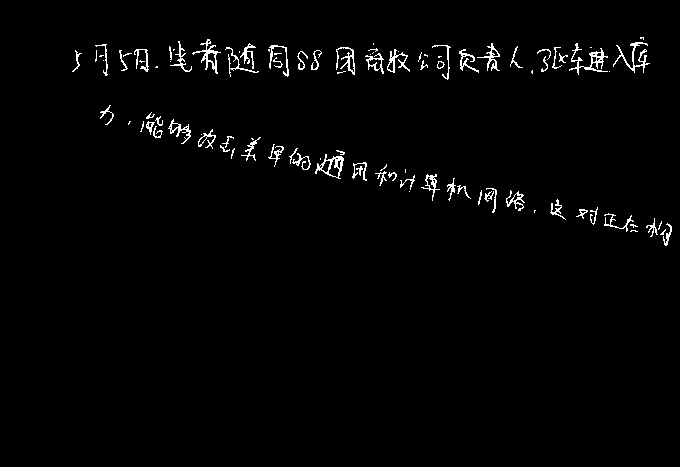 5月5日.笔者随同88团畜牧公司负责人.驱车进入库
力.能够攻击美军的通讯和计算机网络.这对正在构